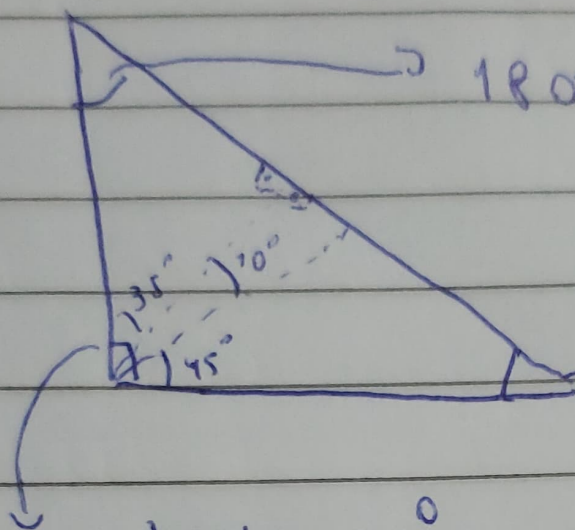 180
35°
10°
45°
0